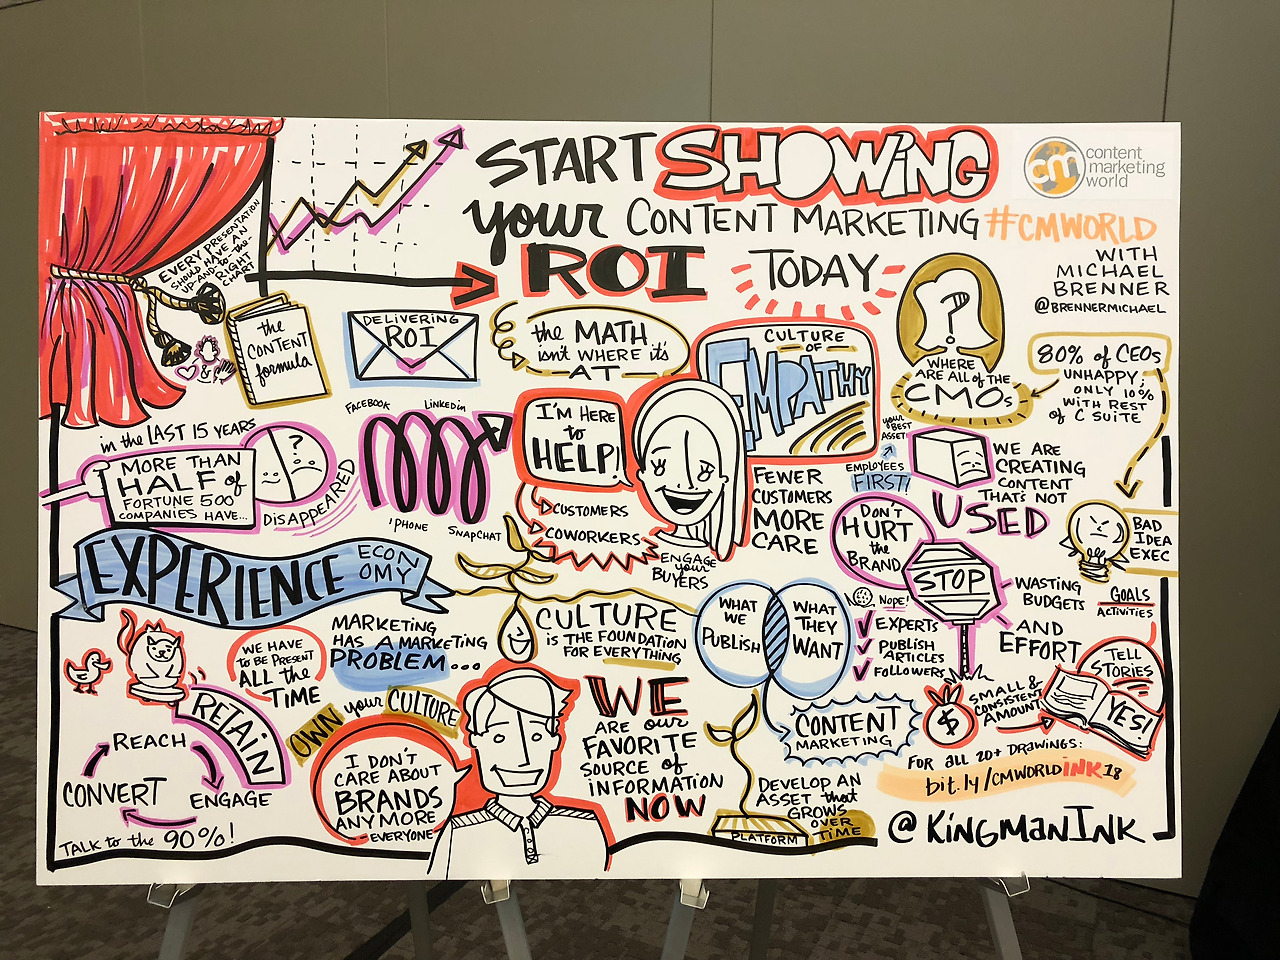 START SHOWING
your CONTENT MARKETING #CMWORLD
ROI TODAY
content
marketing
world
cm
WITH
MICHAEL
BRENNER
@BRENNERMICHAEL
EVERY PRESENTATION
SHOULD HAVE AN
UP-and-to-the-
RIGHT
CHART
the
CONTENT
formula
&
DELIVERING
ROI
the MATH
isn't WHERE it's
AT
CULTURE
OF
EMPATHY
?
WHERE
ARE ALL of THE
CMOs
80% of CEOs
UNHAPPY;
ONLY 10%
WITH REST
of C SUITE
in the LAST 15 YEARS
MORE THAN
HALF of
FORTUNE 500
COMPANIES HAVE...
?
DISAPPEARED
FACEBOOK
LINKEDIN
IPHONE
SNAPCHAT
I'M HERE
to
HELP!
CUSTOMERS
COWORKERS
ENGAGE
your
BUYERS
FEWER
CUSTOMERS
MORE
CARE
your
BEST
ASSET!
EMPLOYEES
FIRST!
WE ARE
CREATING
CONTENT
THAT'S NOT
USED
DON'T
HURT
the
BRAND
STOP
WASTING
BUDGETS
AND
EFFORT
BAD
IDEA
EXEC
GOALS
ACTIVITIES
NOPE!
EXPERTS
PUBLISH
ARTICLES
FOLLOWERS
EXPERIENCE
ECON
OMY
CULTURE
is THE FOUNDATION
FOR EVERYTHING
WHAT
WE
PUBLISH
WHAT
THEY
WANT
CONTENT
MARKETING
WE HAVE
TO BE PRESENT
ALL the
TIME
MARKETING
HAS A MARKETING
PROBLEM...
OWN your CULTURE
RETAIN
REACH
ENGAGE
CONVERT
TALK to the 90%!
I DON'T
CARE ABOUT
BRANDS
ANYMORE
-EVERYONE
WE
ARE our
FAVORITE
SOURCE of
INFORMATION
NOW
DEVELOP AN
ASSET that
GROWS
OVER
TIME
PLATFORM
$
SMALL &
CONSISTENT
AMOUNT
TELL
STORIES
YES!
FOR ALL 20+ DRAWINGS:
bit.ly/CMWORLDINK18
@KINGMANINK